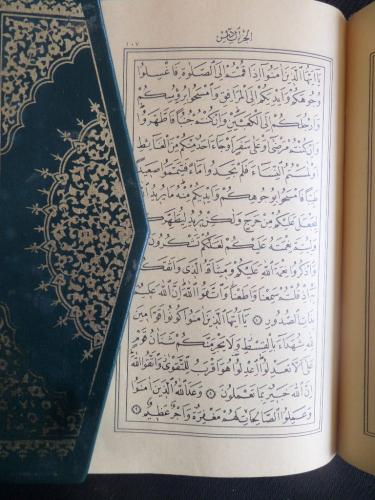 الجزء السادس
١٠٧
يَا أَيُّهَا الَّذِينَ اٰمَنُوا إِذَا قُمْتُمْ إِلَى الصَّلٰوةِ فَاغْسِلُوا
وُجُوهَكُمْ وَأَيْدِيَكُمْ إِلَى الْمَرَافِقِ وَامْسَحُوا بِرُؤُسِكُمْ
وَأَرْجُلَكُمْ إِلَى الْكَعْبَيْنِ وَإِنْ كُنْتُمْ جُنُبًا فَاطَّهَّرُوا
وَإِنْ كُنْتُمْ مَرْضٰى أَوْ عَلٰى سَفَرٍ أَوْ جَاءَ أَحَدٌ مِنْكُمْ مِنَ الْغَائِطِ
أَوْ لٰمَسْتُمُ النِّسَاءَ فَلَمْ تَجِدُوا مَاءً فَتَيَمَّمُوا صَعِيدًا
طَيِّبًا فَامْسَحُوا بِوُجُوهِكُمْ وَأَيْدِيكُمْ مِنْهُ مَا يُرِيدُ
لِيَجْعَلَ عَلَيْكُمْ مِنْ حَرَجٍ وَلٰكِنْ يُرِيدُ لِيُطَهِّرَكُمْ
وَلِيُتِمَّ نِعْمَتَهُ عَلَيْكُمْ لَعَلَّكُمْ تَشْكُرُونَ
وَاذْكُرُوا نِعْمَةَ اللّٰهِ عَلَيْكُمْ وَمِيثَاقَهُ الَّذِي وَاثَقَكُمْ
بِهِ إِذْ قُلْتُمْ سَمِعْنَا وَأَطَعْنَا وَاتَّقُوا اللّٰهَ إِنَّ اللّٰهَ عَلِيمٌ
بِذَاتِ الصُّدُورِ ٧ يَا أَيُّهَا الَّذِينَ اٰمَنُوا كُونُوا قَوَّامِينَ
لِلّٰهِ شُهَدَاءَ بِالْقِسْطِ وَلَا يَجْرِمَنَّكُمْ شَنَاٰنُ قَوْمٍ
عَلٰى أَلَّا تَعْدِلُوا اِعْدِلُوا هُوَ أَقْرَبُ لِلتَّقْوٰى وَاتَّقُوا اللّٰهَ
إِنَّ اللّٰهَ خَبِيرٌ بِمَا تَعْمَلُونَ ٨ وَعَدَ اللّٰهُ الَّذِينَ اٰمَنُوا
وَعَمِلُوا الصَّالِحَاتِ لَهُمْ مَغْفِرَةٌ وَأَجْرٌ عَظِيمٌ ٩